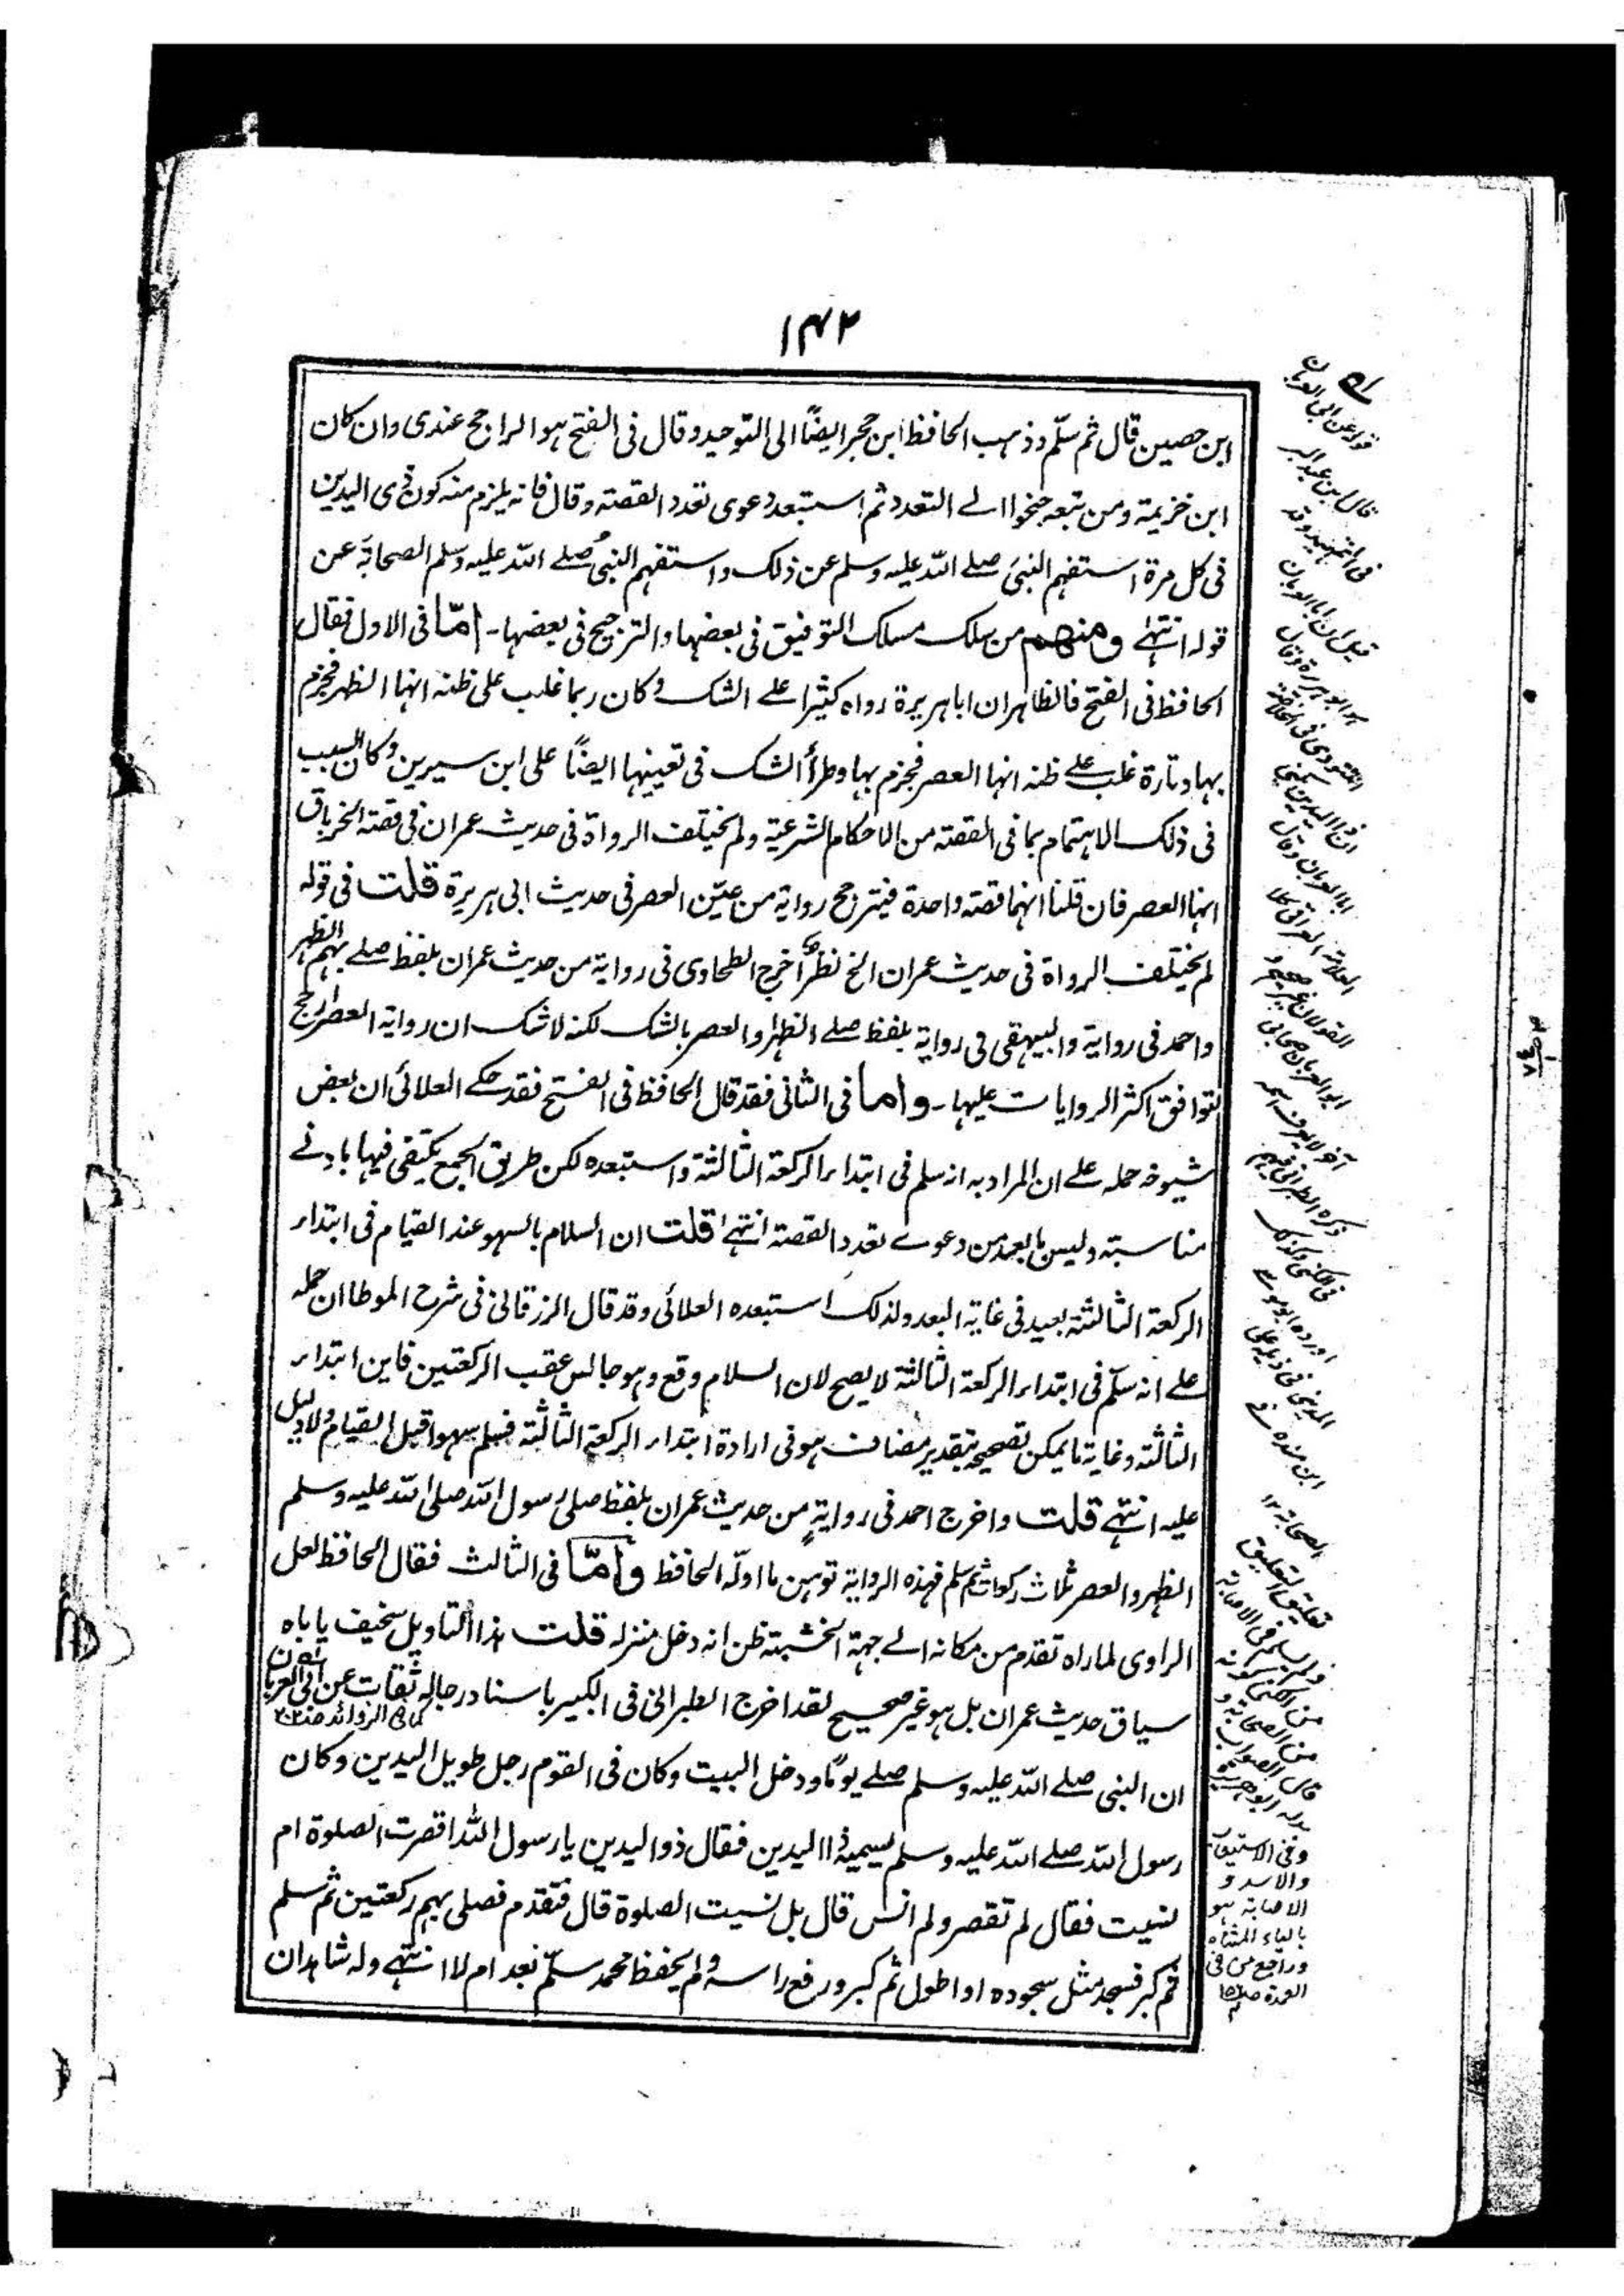 ١٤٢
ابن حصين قال ثم سلّم وذهب الحافظ ابن حجر ايضًا الى التوحيد وقال فى الفتح هو الراجح عندى وان كان
ابن خزيمة ومن تبعه جنحوا الے التعدد ثم استبعد دعوى تعدد القصة وقال فانه يلزم منه كون ذى اليدين
فى كل مرة استفهم النبى صلے الله عليه وسلم عن ذلك واستفهم النبى صلے الله عليه وسلم الصحابة عن
قوله انتہے ومنهم من سلك مسلك التوفيق فى بعضها والترجيح فى بعضها۔ امّا فى الاول فقال
الحافظ فى الفتح فالظاهر ان ابا هريرة رواه كثيرا علے الشك وكان ربما غلب على ظنه انها الظهر فجزم
بها وتارة غلب علے ظنه انها العصر فجزم بها وطرأ الشك فى تعيينها ايضًا على ابن سيرين وكان السبب
فى ذلك الاهتمام بما فى القصة من الاحكام الشرعية ولم يختلف الرواة فى حديث عمران فى قصة الخرباق
انها العصر فان قلنا انهما قصة واحدة فيترجح رواية من عيّن العصر فى حديث ابى هريرة قلت فى قوله
لم يختلف الرواة فى حديث عمران الخ نظر اخرج الطحاوى فى رواية من حديث عمران بلفظ صلے بهم الظهر
واحمد فى رواية والبيهقى فى رواية بلفظ صلے الظهر او العصر بالشك لكنه لا شك ان رواية العصر ارجح
لتوافق اكثر الروايات عليها۔ واما فى الثانى فقد قال الحافظ فى الفتح فقد حكے العلائى ان بعض
شيوخه حمله علے ان المراد به انه سلم فى ابتداء الركعة الثالثة واستبعده لكن طريق الجمع يكتفى فيها بادنے
مناسبة وليس بابعد من دعوے تعدد القصة انتہے قلت ان السلام بالسهو عند القيام فى ابتداء
الركعة الثالثة بعيد فى غاية البعد ولذلك استبعده العلائى وقد قال الزرقانى فى شرح الموطا ان حمله
علے انه سلّم فى ابتداء الركعة الثالثة لا يصح لان السلام وقع وهو جالس عقب الركعتين فاين ابتداء
الثالثة وغاية ما يمكن تصحيحه بتقدير مضاف هو فى ارادة ابتداء الركعة الثالثة فسلم سهوا قبل القيام ولا دليل
عليه انتہے قلت واخرج احمد فى رواية من حديث عمران بلفظ صلى رسول الله صلى الله عليه وسلم
الظهر والعصر ثلاث ركعات ثم سلم فهذه الرواية توهين ما اوله الحافظ وامّا فى الثالث فقال الحافظ لعل
الراوى لما راه تقدم من مكانه الے جهة الخشبة ظن انه دخل منزله قلت هذا التاويل سخيف ياباه
سياق حديث عمران بل هو غير صحيح لقد اخرج الطبرانى فى الكبير باسناد رجاله ثقات عن ابى العريان
كما فى الزوائد
ان النبى صلے الله عليه وسلم صلے يومًا ودخل البيت وكان فى القوم رجل طويل اليدين وكان
رسول الله صلے الله عليه وسلم يسميه ذا اليدين فقال ذو اليدين يا رسول الله اقصرت الصلوة ام
نسيت فقال لم تقصر ولم انس قال بل نسيت الصلوة قال فتقدم فصلى بهم ركعتين ثم سلم
ثم كبر فسجد مثل سجوده او اطول ثم كبر ورفع راسه ولم يحفظ محمد سلّم بعد ام لا انتہے وله شاهدان
قوله عن ابى العريان
قال ابن عبد البر
فى التمهيد وقد
قيل ان ابا العريان
هو ابو هريرة وقال
النووى فى الخلاصة
ان ذا اليدين يكنى
ابا العريان وقال
العلامة العراقى كلا
القولين غير صحيح و
ابو العريان صحابى
آخر لا يعرف اسمه
ذكره الطبرانى فيهم
فى الكنى وكذلك
اورده ابو موسے
المدينى فى ذيله على
ابن منده فے
الصحابة ١٢
تعليق التعليق
من الصحابة و
قال الصواب
بدله ابو هريرة
وفى الاستيعاب
والاسد و
الاصابة هو
بالياء المثناة
وراجع من فى
العمدة